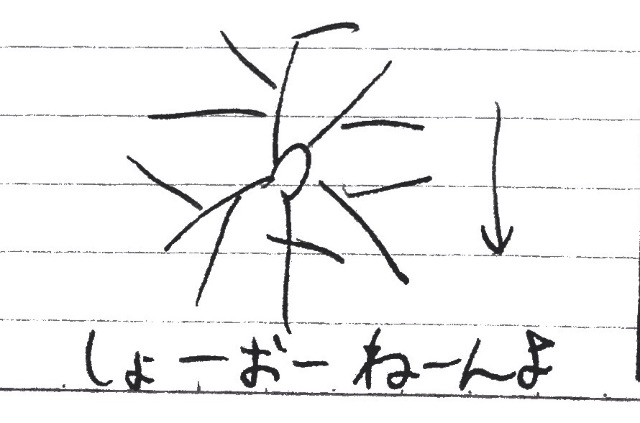 しょーおー ねーんよ